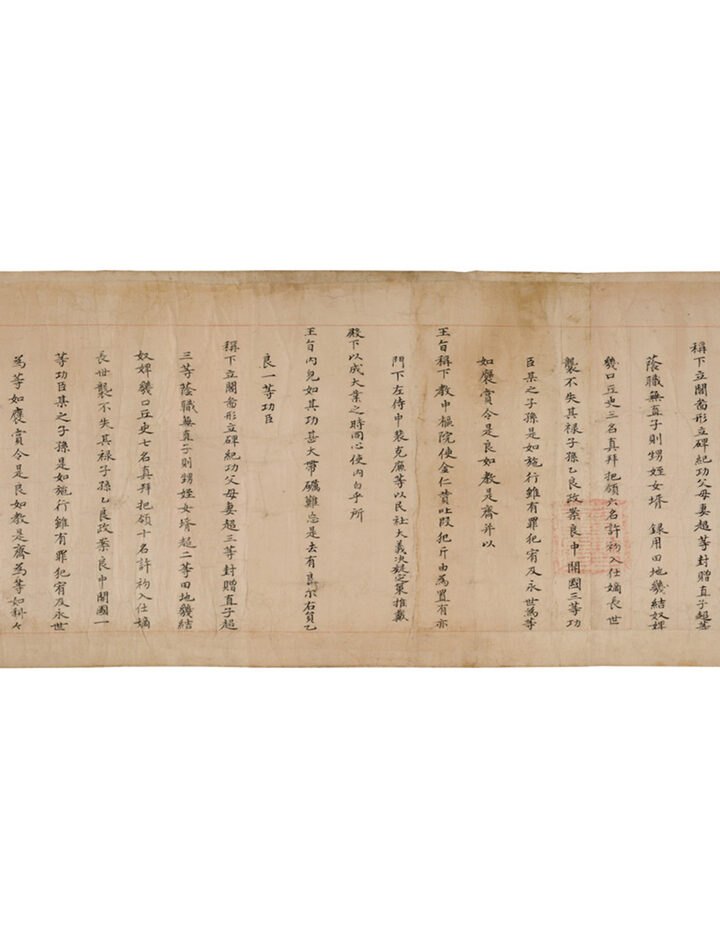 稱下立閣啚形立碑紀功父母妻超等封贈直子超等
蔭職無直子則甥姪女壻 録用田地幾結奴婢
幾口丘史三名真拜把領六名許初入仕嫡長世
襲不失其禄子孫乙良政案良中開國三等功
臣某之子孫是如施行雖有罪犯宥及永世為等
如褒賞令是良如教是齋并以
王旨稱下教中樞院使金仁賛叱段犯斤由為置有亦
門下左侍中裴克廉等以民社大義決疑定策推戴
殿下以成大業之時同心使內白乎所
王旨內皃如其功甚大帶礪難忘是去有良尒右員乙
良一等功臣
稱下立閣啚形立碑紀功父母妻超三等封贈直子超
三等蔭職無直子則甥姪女壻超二等田地幾結
奴婢幾口丘史七名真拜把領十名許初入仕嫡
長世襲不失其禄子孫乙良政案良中開國一
等功臣某之子孫是如施行雖有罪犯宥及永世
為等如褒賞令是良如教是齋為等如科々